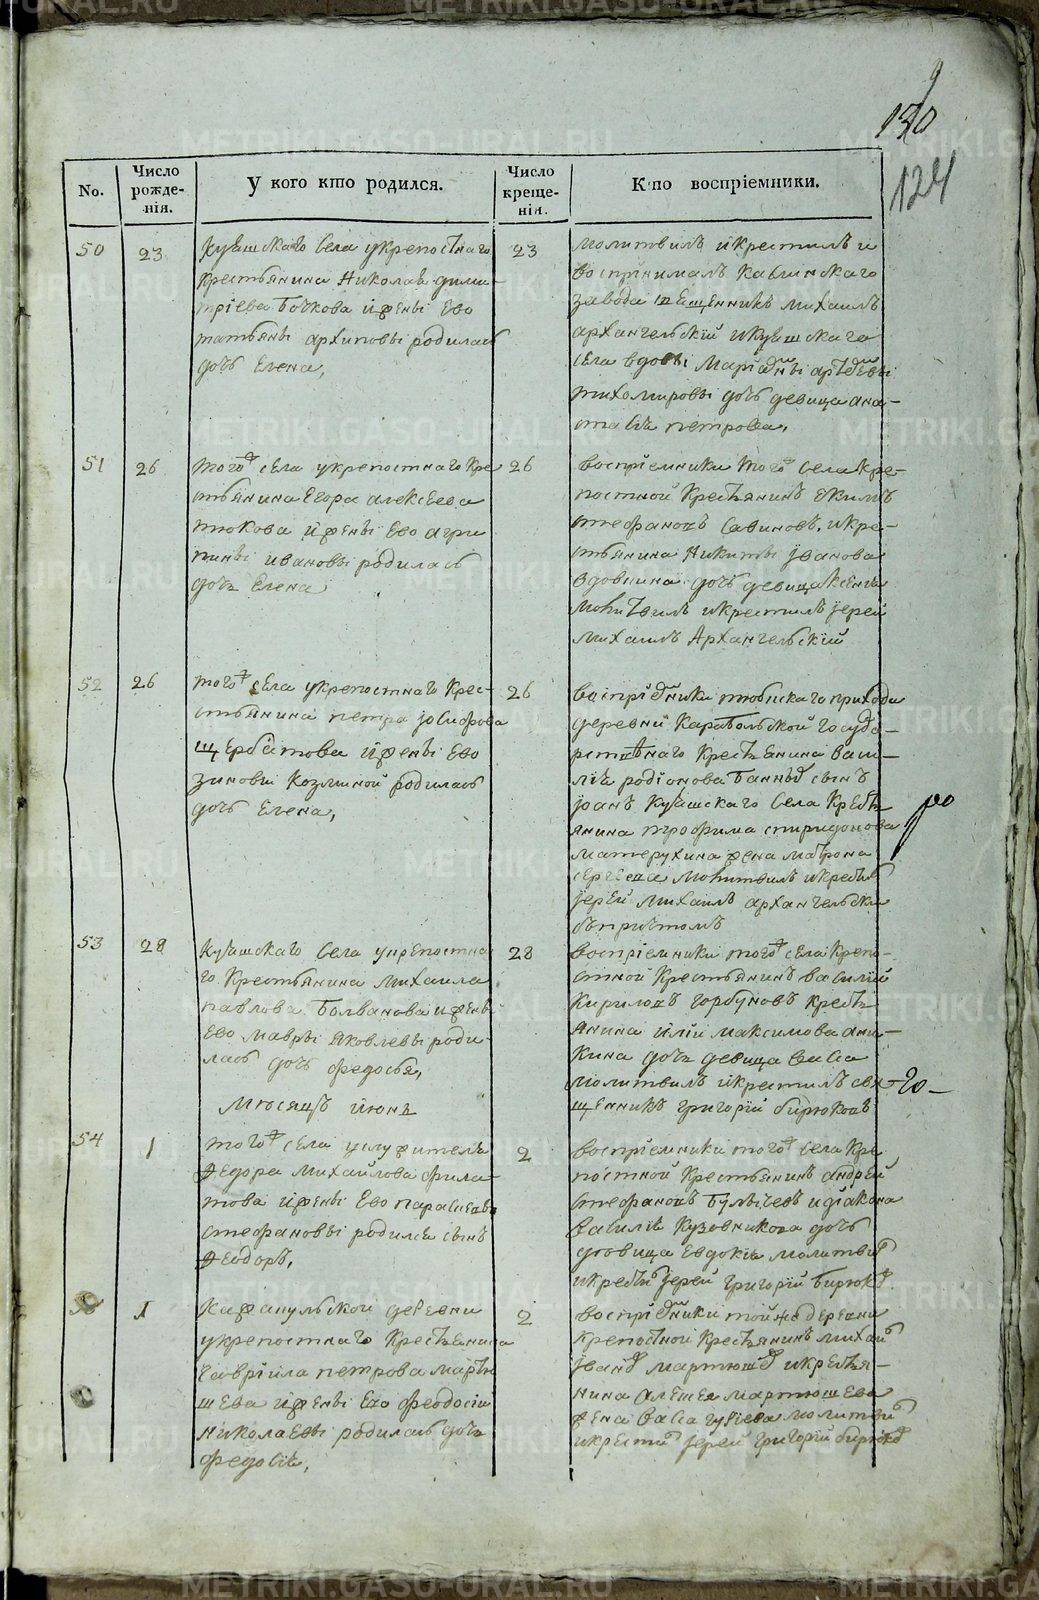 9
130
124
No.
Число рожденія.
У кого кто родился.
Число крещенія.
Кто воспріемники.
50
23
Куяшскаго села у крепостнаго
крестьянина Николая дими-
тріева Бочкова и жены Ево
татьяны архиповы родилась
дочь Елена,
23
молитвилъ и крестилъ и
воспринималъ Каслинскаго
завода священникъ михаилъ
архангельскій и куяшскаго
села вдовы
тихомировы дочь девица ана-
петрова,
51
26
того ж села у крепостнаго кре
стьянина Егора алексеева
тюкова и жены Ево агри
пины ивановы родилась
дочь Елена
26
воспріемники того ж села кре-
постной крестьянинъ Екимъ
стефановъ Савиновъ, и кре-
стьянина Никиты Іванова
вдовина дочь девица Ксенія
молитвилъ и крестилъ іерей
михаилъ Архангельскій
52
26
того ж села у крепостнаго крес-
тьянина петра іосифова
щербатова и жены Ево
зиновіи козминой родилась
дочь Елена,
26
воспріемники тюбукскаго прихода
деревни Карабольской государ-
ственнаго крестьянина васи-
лія родіонова сынъ
іоанъ Куяшскаго села крестья
янина трофима спиридонова
матерухина жена матрона
молитвилъ и крестилъ
іерей михаилъ архангельски
53
28
Куяшскаго села у крепостна
го крестьянина михаила
павлова Болванова и жены
Ево мавры яковлевы роди-
лась дочь федосья,
28
воспріемники того ж села крепо-
стной крестьянинъ василій
кириловъ горбуновъ крестья
янина иліи максимова ани-
кина дочь девица васа
молитвилъ и крестилъ свя-
щенникъ григорій бирюковъ
мѣсяцъ июнь
54
1
того ж села у служителя
Федора михайлова фила-
това и жены Ево параскевы
стефановы родился сынъ
Феодоръ,
2
воспріемники того ж села кре
постной крестьянинъ андрей
стефановъ и діакона
василія Кузовникова дочь
девица Евдокія молитвил
и крестил іерей григорій бирюков
1
деревни
у крепостнаго крестьянина
гавріила петрова марты
шева и жены Ево феодосіи
николаевы родилась дочь
федосія,
2
воспріемники той же деревни
крепостной крестьянинъ михаил
іванов мартюшов и крестья-
нина алексея мартюшева
жена васа молитвил
и крестил іерей григорій бирюков